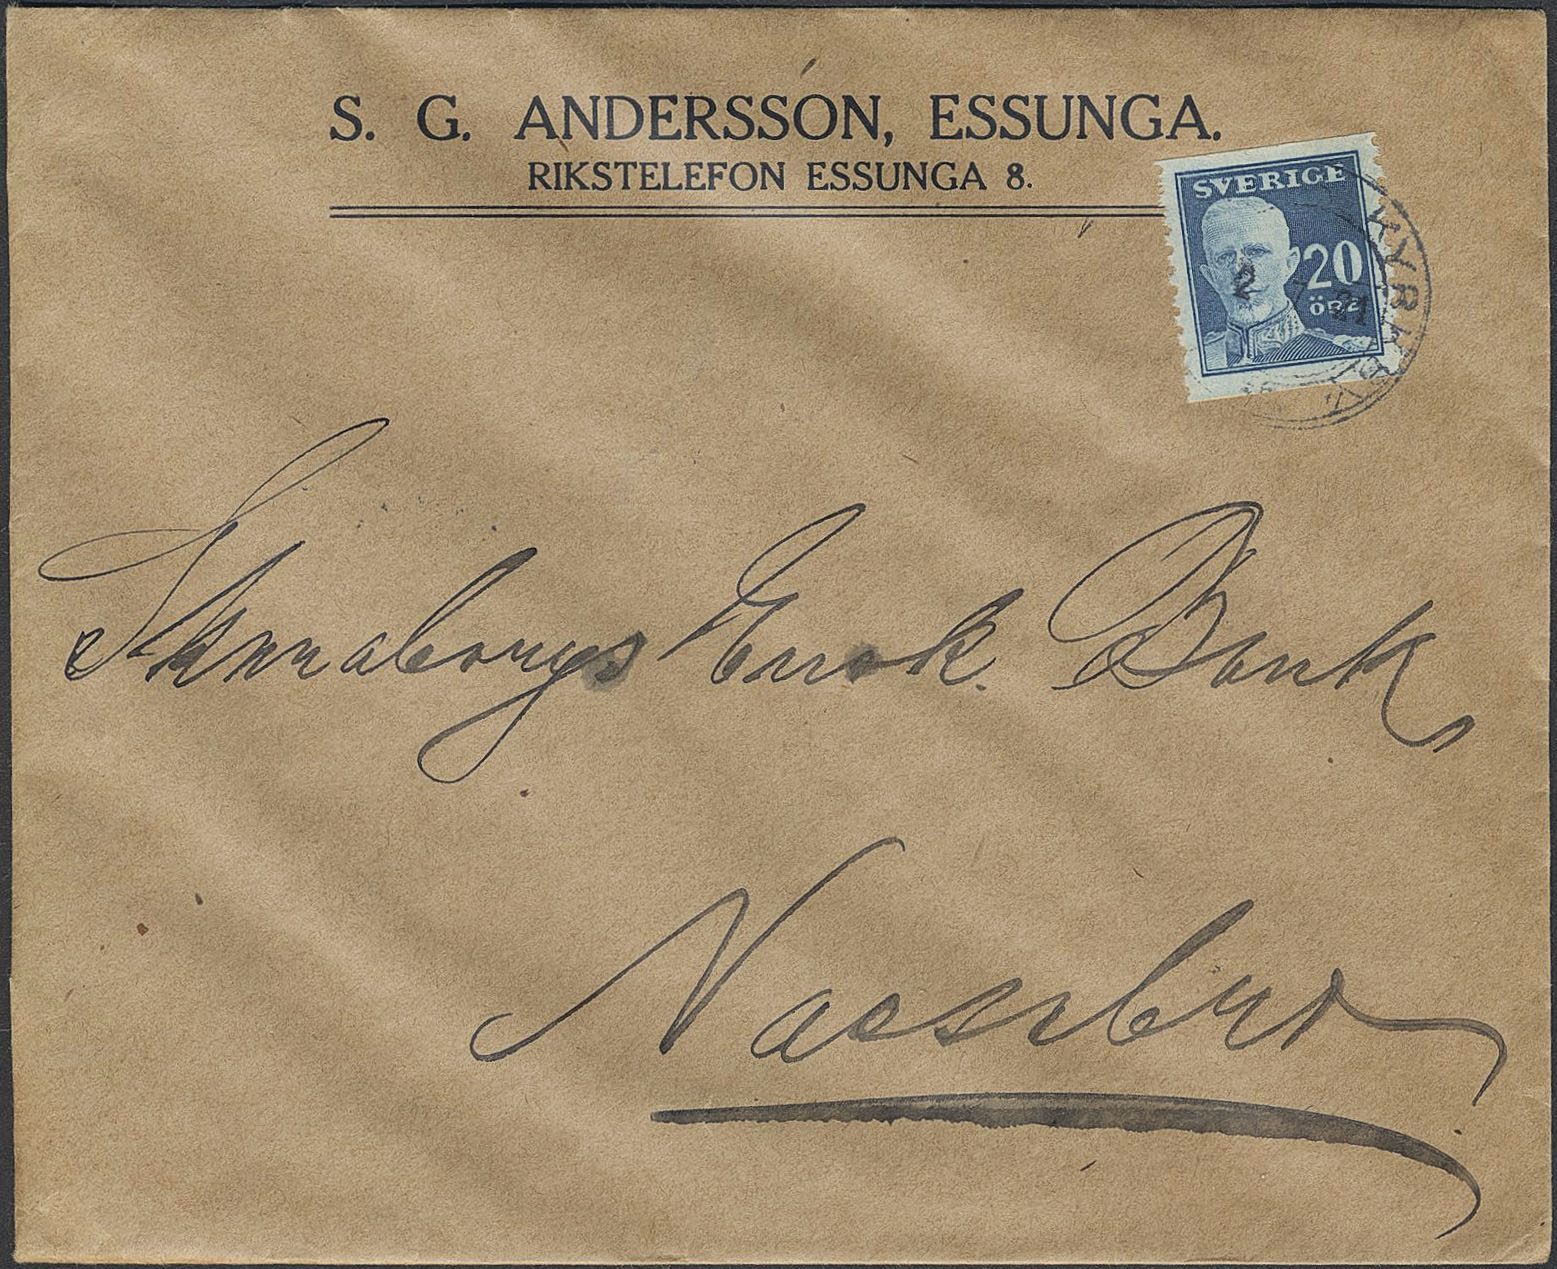 S. G. ANDERSSON, ESSUNGA.
RIKSTELEFON ESSUNGA 8.
SVERIGE
20
ÖRE
2 7 21
Skaraborgs Ensk. Bank